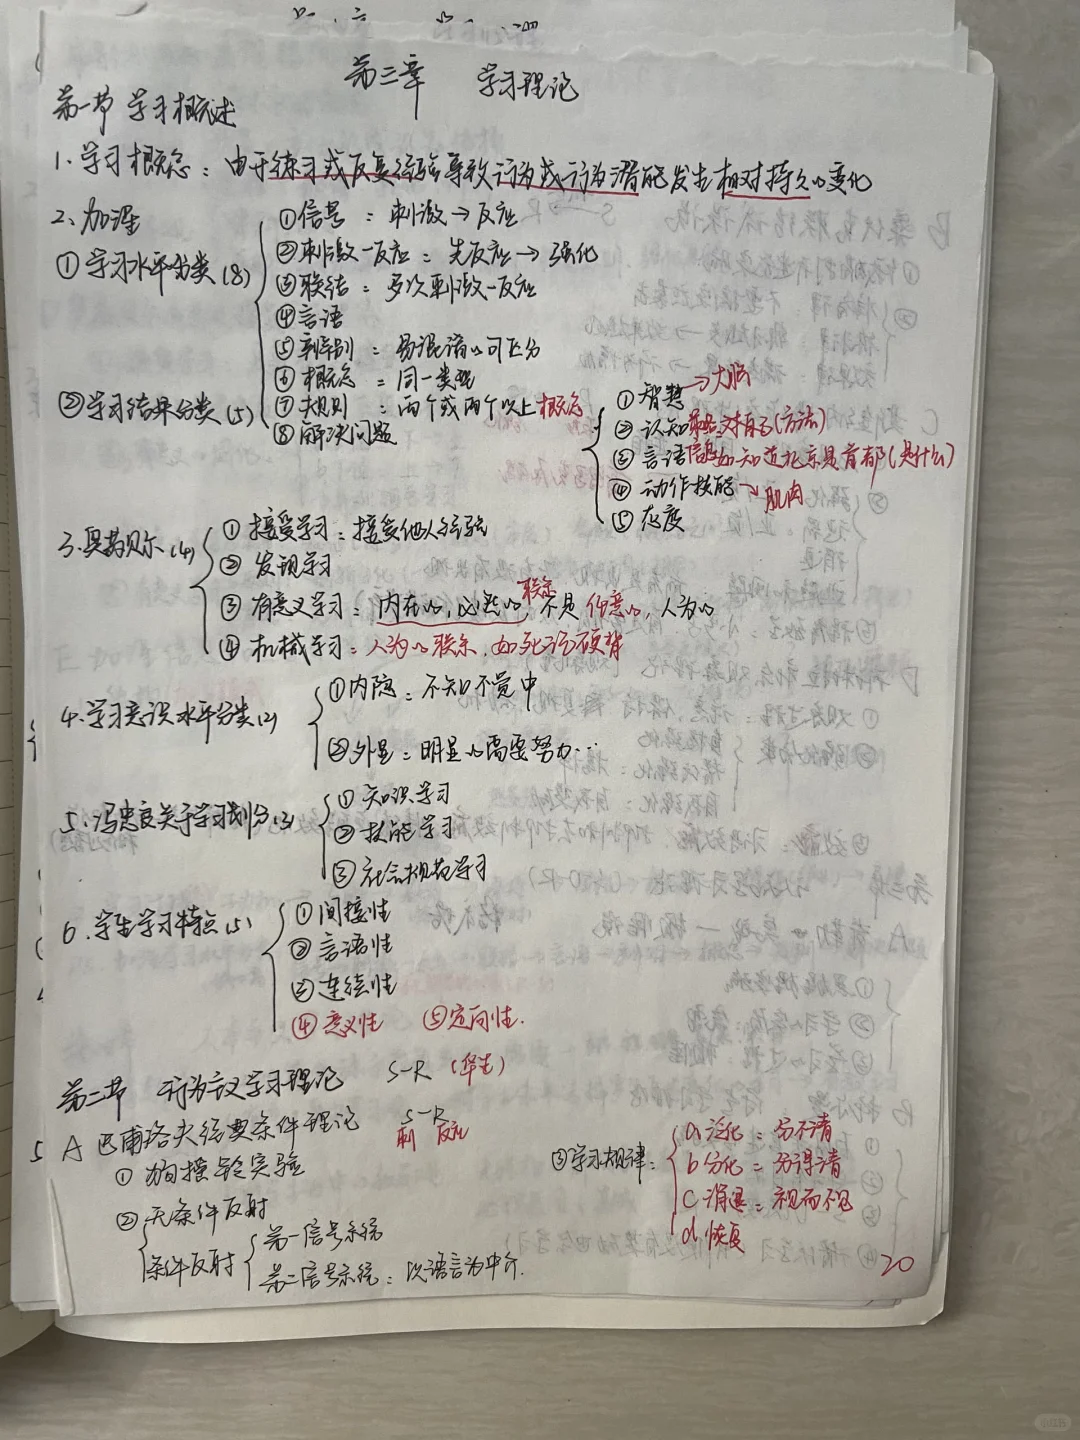 第三章 学习理论
第一节 学习概述
1.学习概念：由于练习或反复经验导致行为或行为潜能发生相对持久的变化
2.加涅
①学习水平分类(8)
①信号：刺激→反应
②刺激—反应：先反应→强化
③联结：多次刺激—反应
④言语
⑤辨别：易混淆的可区分
⑥概念：同一类型
⑦规则：两个或两个以上概念
⑧解决问题
②学习结果分类(5)
①智慧→大脑
②认知策略
③言语信息 如知道北京是首都(是什么)
④动作技能→肌肉
⑤态度
3.奥苏贝尔(4)
①接受学习：接受他人经验
②发现学习
③有意义学习：内在的,必然的联系,不是任意的,人为的
④机械学习：人为的联系,如死记硬背
4.学习意识水平分类(2)
①内隐：不知不觉中
②外显：明显的需要努力…
5.冯忠良关于学习划分(3)
①知识学习
②技能学习
③社会规范学习
6.学生学习特点(5)
①间接性
②言语性
③连续性
④意义性 ⑤定向性.
第二节 行为主义学习理论 S-R (华生)
5 A 巴甫洛夫经典条件理论 S-R
刺 反应
①狗摇铃实验
②无条件反射
条件反射
第一信号系统
第二信号系统：以语言为中介.
③学习规律：
a泛化：分不清
b分化：分得清
c消退：视而不见
d恢复
20